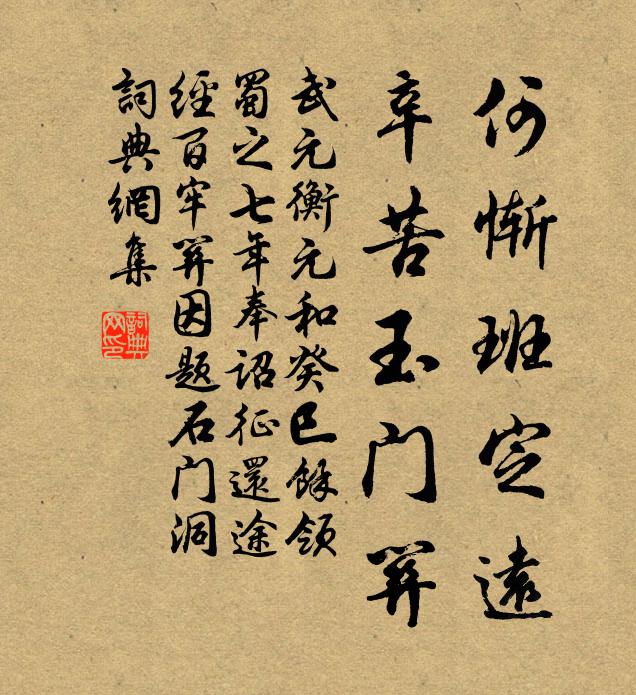 何慚班定遠
辛苦玉门关
武元衡元和癸巳餘領
蜀之七年奉詔征還途
經百牢关因题石门洞
詞典網集
詞典网印